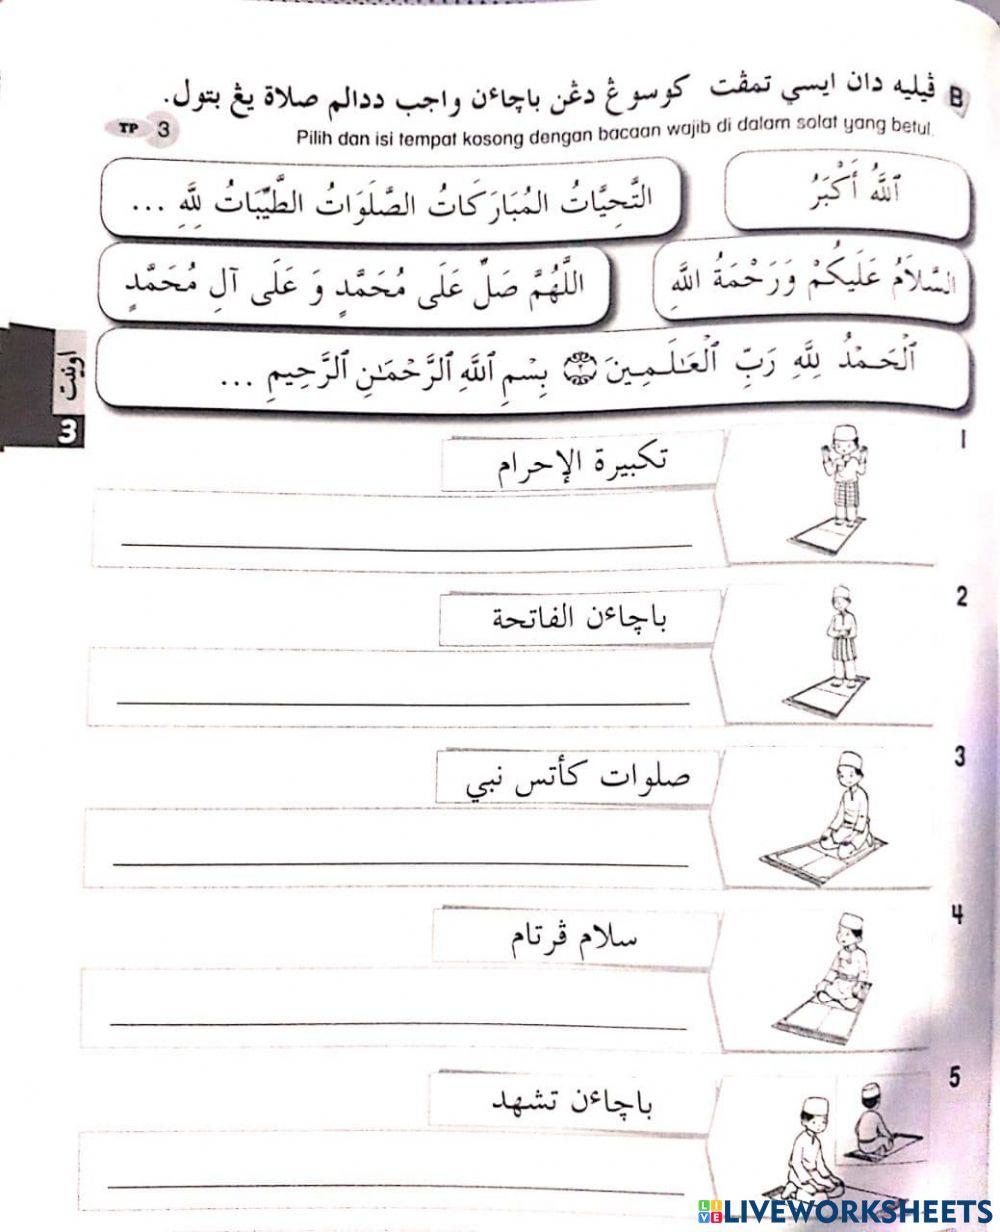 B ڤيليه دان ايسي تمڤت كوسوڠ دڠن باچاءن واجب ددالم صلاة يڠ بتول.
Pilih dan isi tempat kosong dengan bacaan wajib di dalam solat yang betul.
TP 3
ٱللَّهُ أَكْبَرُ
التَّحِيَّاتُ المُبَارَكَاتُ الصَّلَوَاتُ الطَّيِّبَاتُ لِلَّهِ ...
السَّلاَمُ عَلَيكُمْ وَرَحْمَةُ اللَّهِ
اللَّهُمَّ صَلِّ عَلَى مُحَمَّدٍ وَ عَلَى آلِ مُحَمَّدٍ
ٱلْحَمْدُ لِلَّهِ رَبِّ ٱلْعَـٰلَـمِـينَ ۝٢ بِسْمِ ٱللَّهِ ٱلرَّحْمَـٰنِ ٱلرَّحِيمِ ...
اونيت
3
1
تكبيرة الإحرام
2
باچاءن الفاتحة
3
صلوات كأتس نبي
4
سلام ڤرتام
5
باچاءن تشهد
LIVE LIVEWORKSHEETS